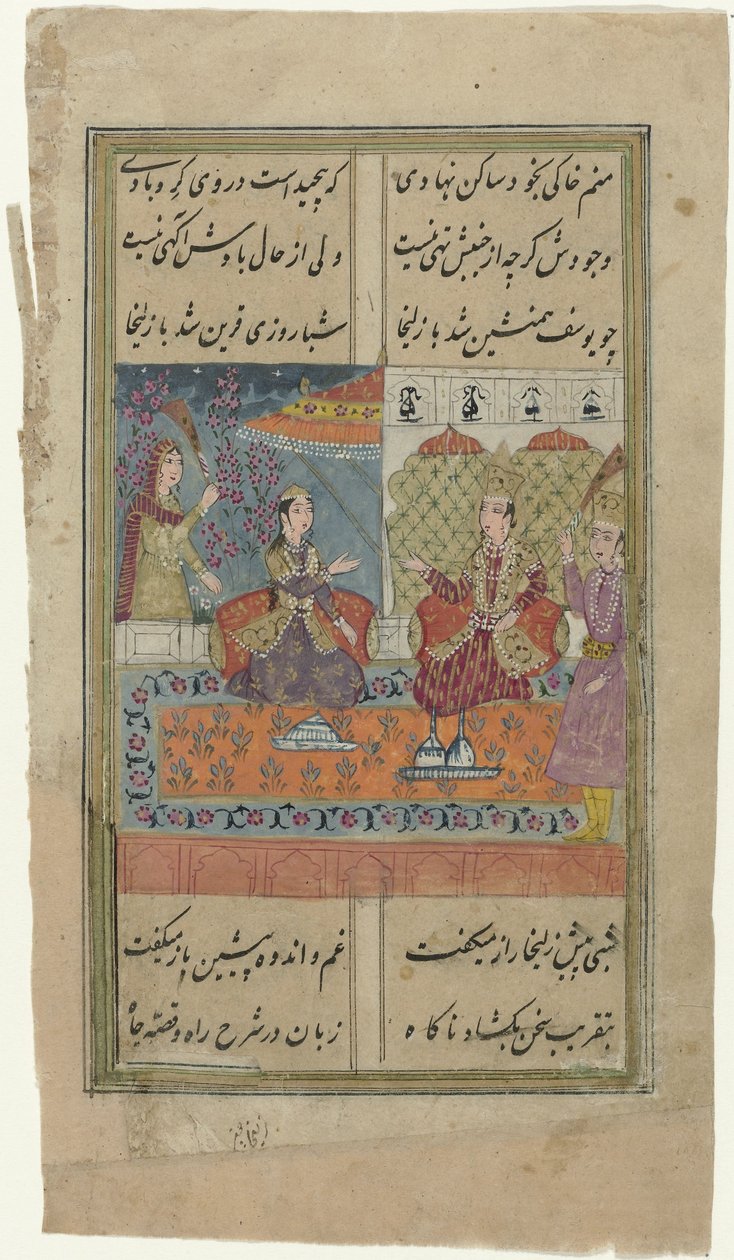 منم خاکی بخود ساکن نهادی که پیچیداست در وی گرد بادی
وجودش کرچه از جنبش تهی نیست ولی از حال بادش آگهی نیست
چو یوسف همنشین شد با زلیخا شبا روزی قرین شد با زلیخا
شبی پیش زلیخا راز میکفت غم و اندوه پیشین باز میکفت
بتقریب سخن بکشاد ناکاه زبان در شرح راه و قصه چاه